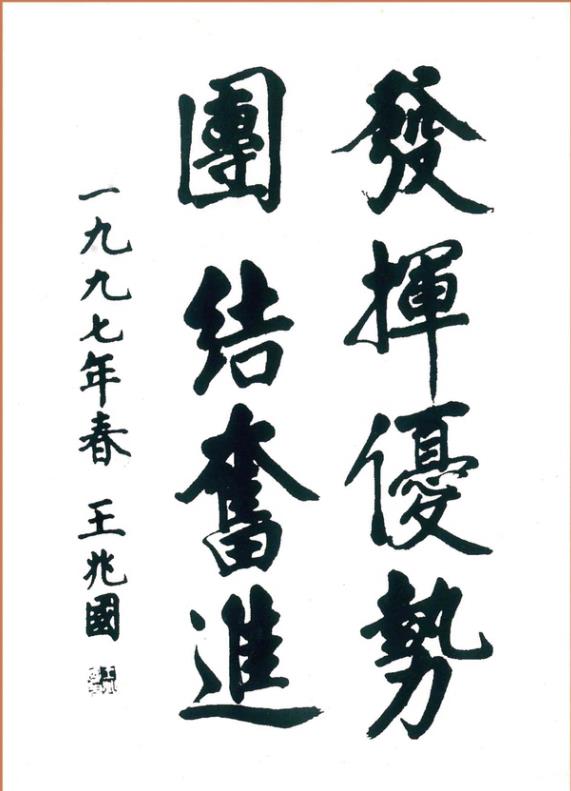 發揮優勢
團結奮進
一九九七年春 王兆國